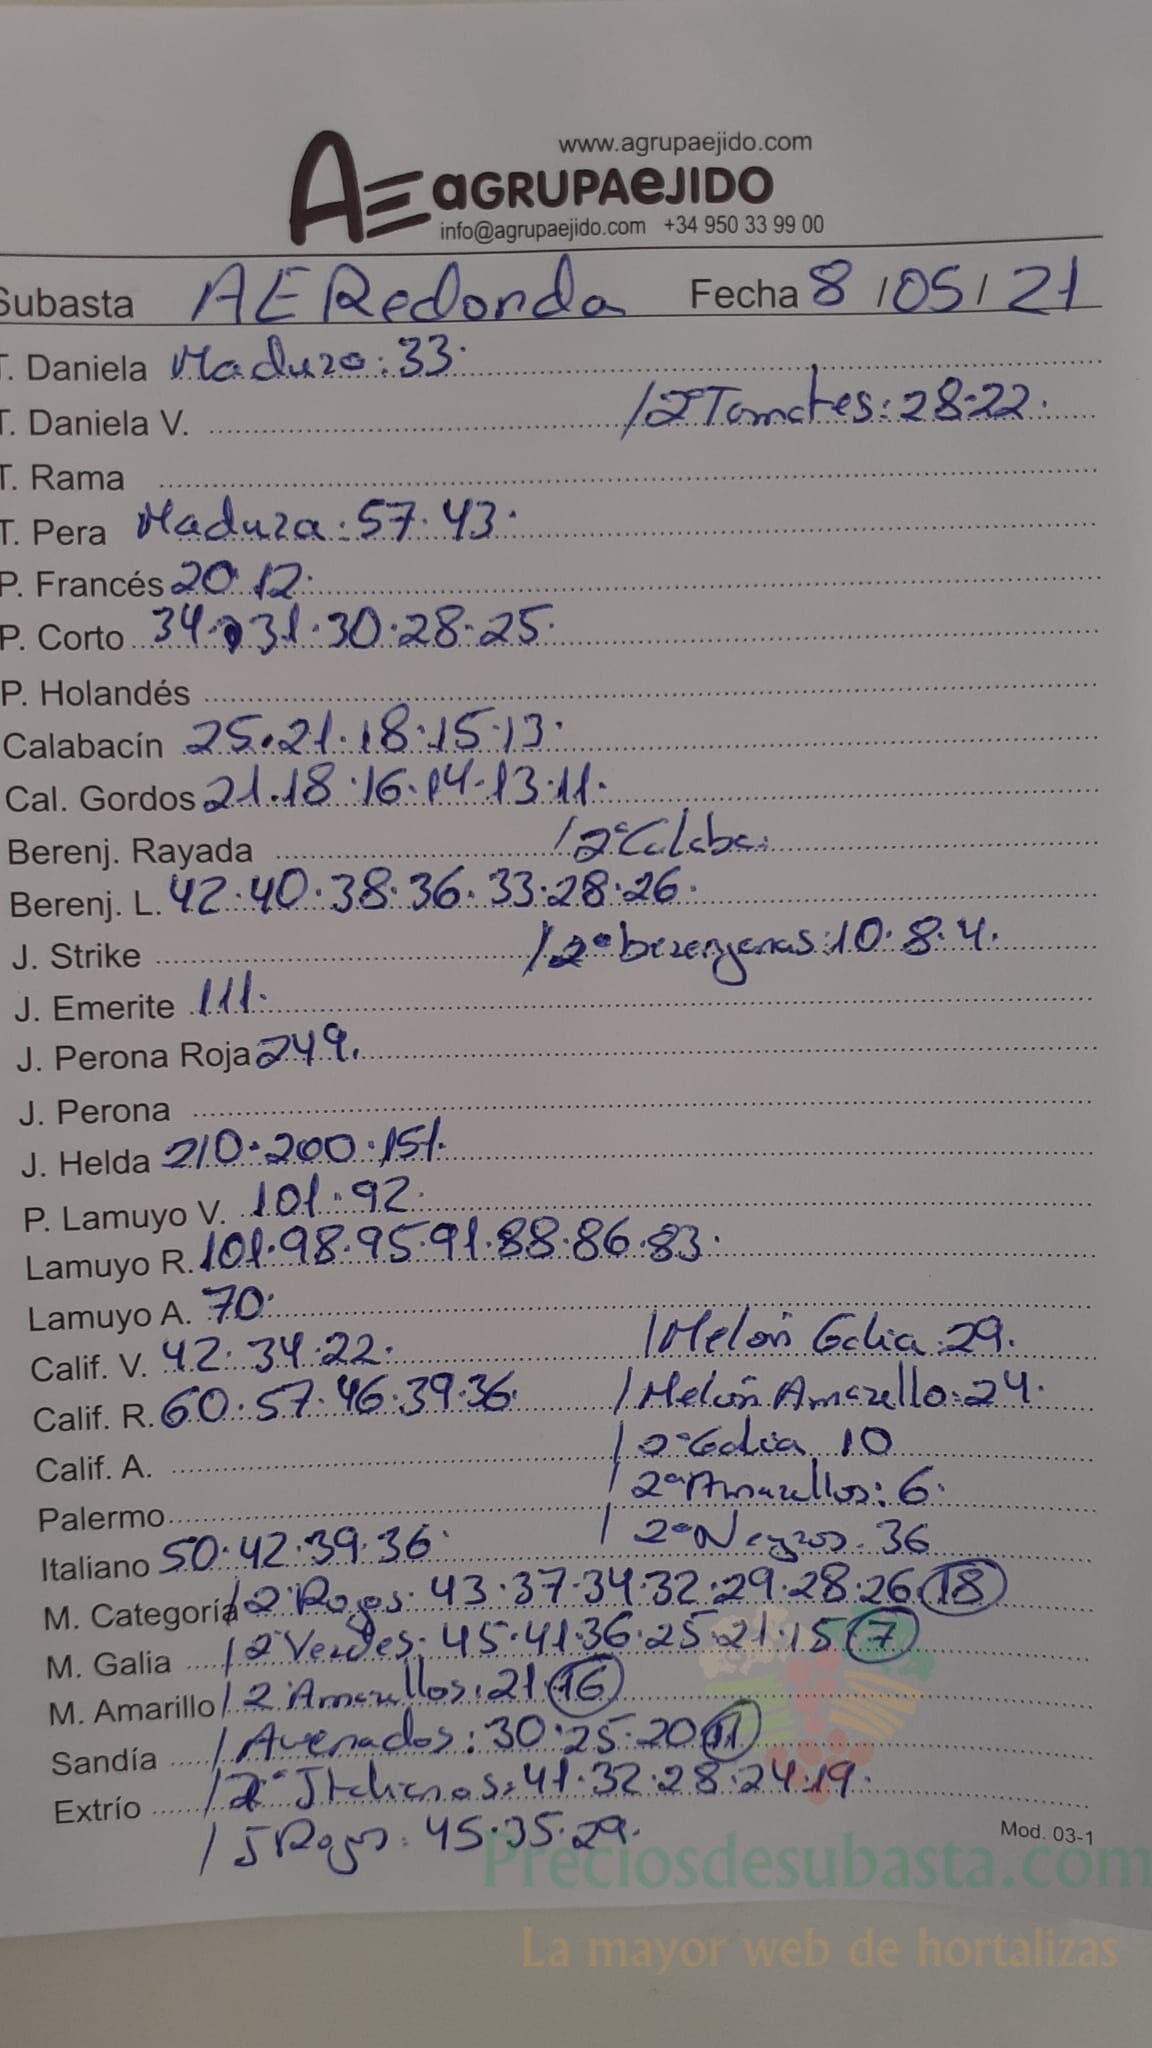 www.agrupaejido.com
AE aGRUPAeJIDO
info@agrupaejido.com +34 950 33 99 00
Subasta AE Redonda Fecha 8/05/21
T. Daniela Maduro: 33.
T. Daniela V. /2ª Tomates: 28.22.
T. Rama
T. Pera Madura: 57.43.
P. Francés 20.12.
P. Corto 34.31.30.28.25.
P. Holandés
Calabacín 25.21.18.15.13.
Cal. Gordos 21.18.16.14.13.11.
Berenj. Rayada /2ª Calaba:
Berenj. L. 42.40.38.36.33.28.26.
J. Strike /2ª berenjenas: 10.8.4.
J. Emerite 111.
J. Perona Roja 249.
J. Perona
J. Helda 210.200.151.
P. Lamuyo V. 101.92.
Lamuyo R. 101.98.95.91.88.86.83.
Lamuyo A. 70.
Calif. V. 42.34.22. /Melón Galia: 29.
Calif. R. 60.57.46.39.36. /Melón Amarello: 24.
Calif. A. /2ª Galia 10
Palermo /2ª Amarellos: 6.
Italiano 50.42.39.36. /2ª Negros. 36
M. Categoría /2ª Rojos. 43.37.34.32.29.28.26.18
M. Galia /2ª Verdes: 45.41.36.25.21.15 7
M. Amarillo /2ª Amarellos: 21 16
Sandía /Avenados: 30.25.20 11
Extrío /2ª Italianos: 41.32.28.24.19.
/J Rojos: 45.35.29.
Mod. 03-1
Preciosdesubasta.com
La mayor web de hortalizas